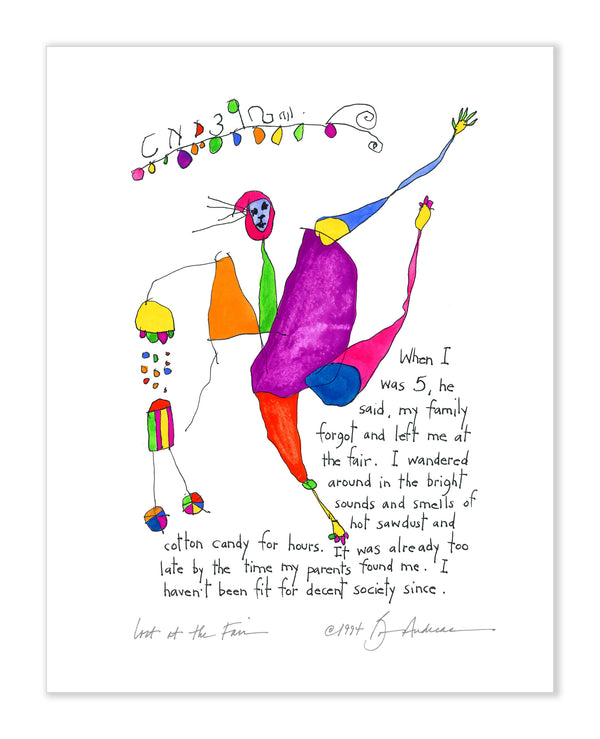 When I
was 5, he
said, my family
forgot and left me at
the fair. I wandered
around in the bright
sounds and smells of
hot sawdust and
cotton candy for hours. It was already too
late by the time my parents found me. I
haven't been fit for decent society since.
Lost at the Fair ©1994 Andreas